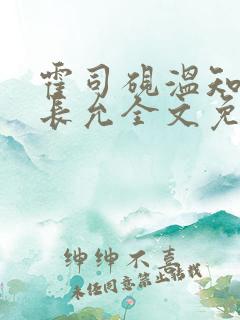 霍司砚温知
长允全文免
绅绅不喜
未经同意禁止转载